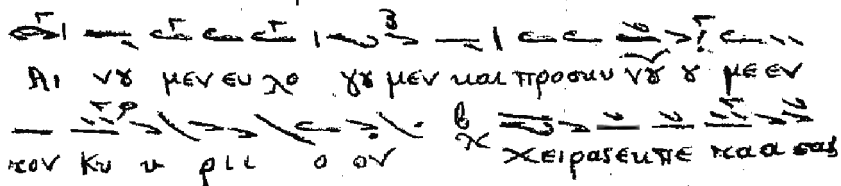 Αι νȣ μεν ευ χο γȣ μεν και προσκυ νȣ ȣ με εν
τον Κυ υ ριι ο ον χειρας εκπε τα α σας